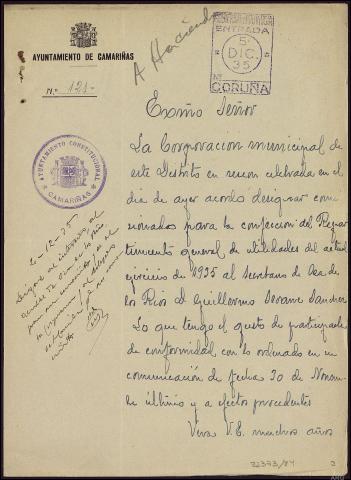 AYUNTAMIENTO DE CAMARIÑAS
N.º 121-
A Hacienda
ENTRADA
5
DIC.
35
CORUÑA
AYUNTAMIENTO CONSTITUCIONAL
CAMARIÑAS
Exmo Señor
La Corporacion municipal de
este Distrito en sesion celebrada en el
dia de ayer acordó designar comi-
sionado para la confección del Repar-
timiento general de utilidades del actual
ejercicio de 1935 al Secretario de
los Rios D Guillermo Seoane Sanchez
Lo que tengo el gusto de participarle
de conformidad con lo ordenado en su
comunicación de fecha 30 de Noviem-
bre último y a efectos procedentes
Viva V.E. muchos años
6-12-35
22373/84
2